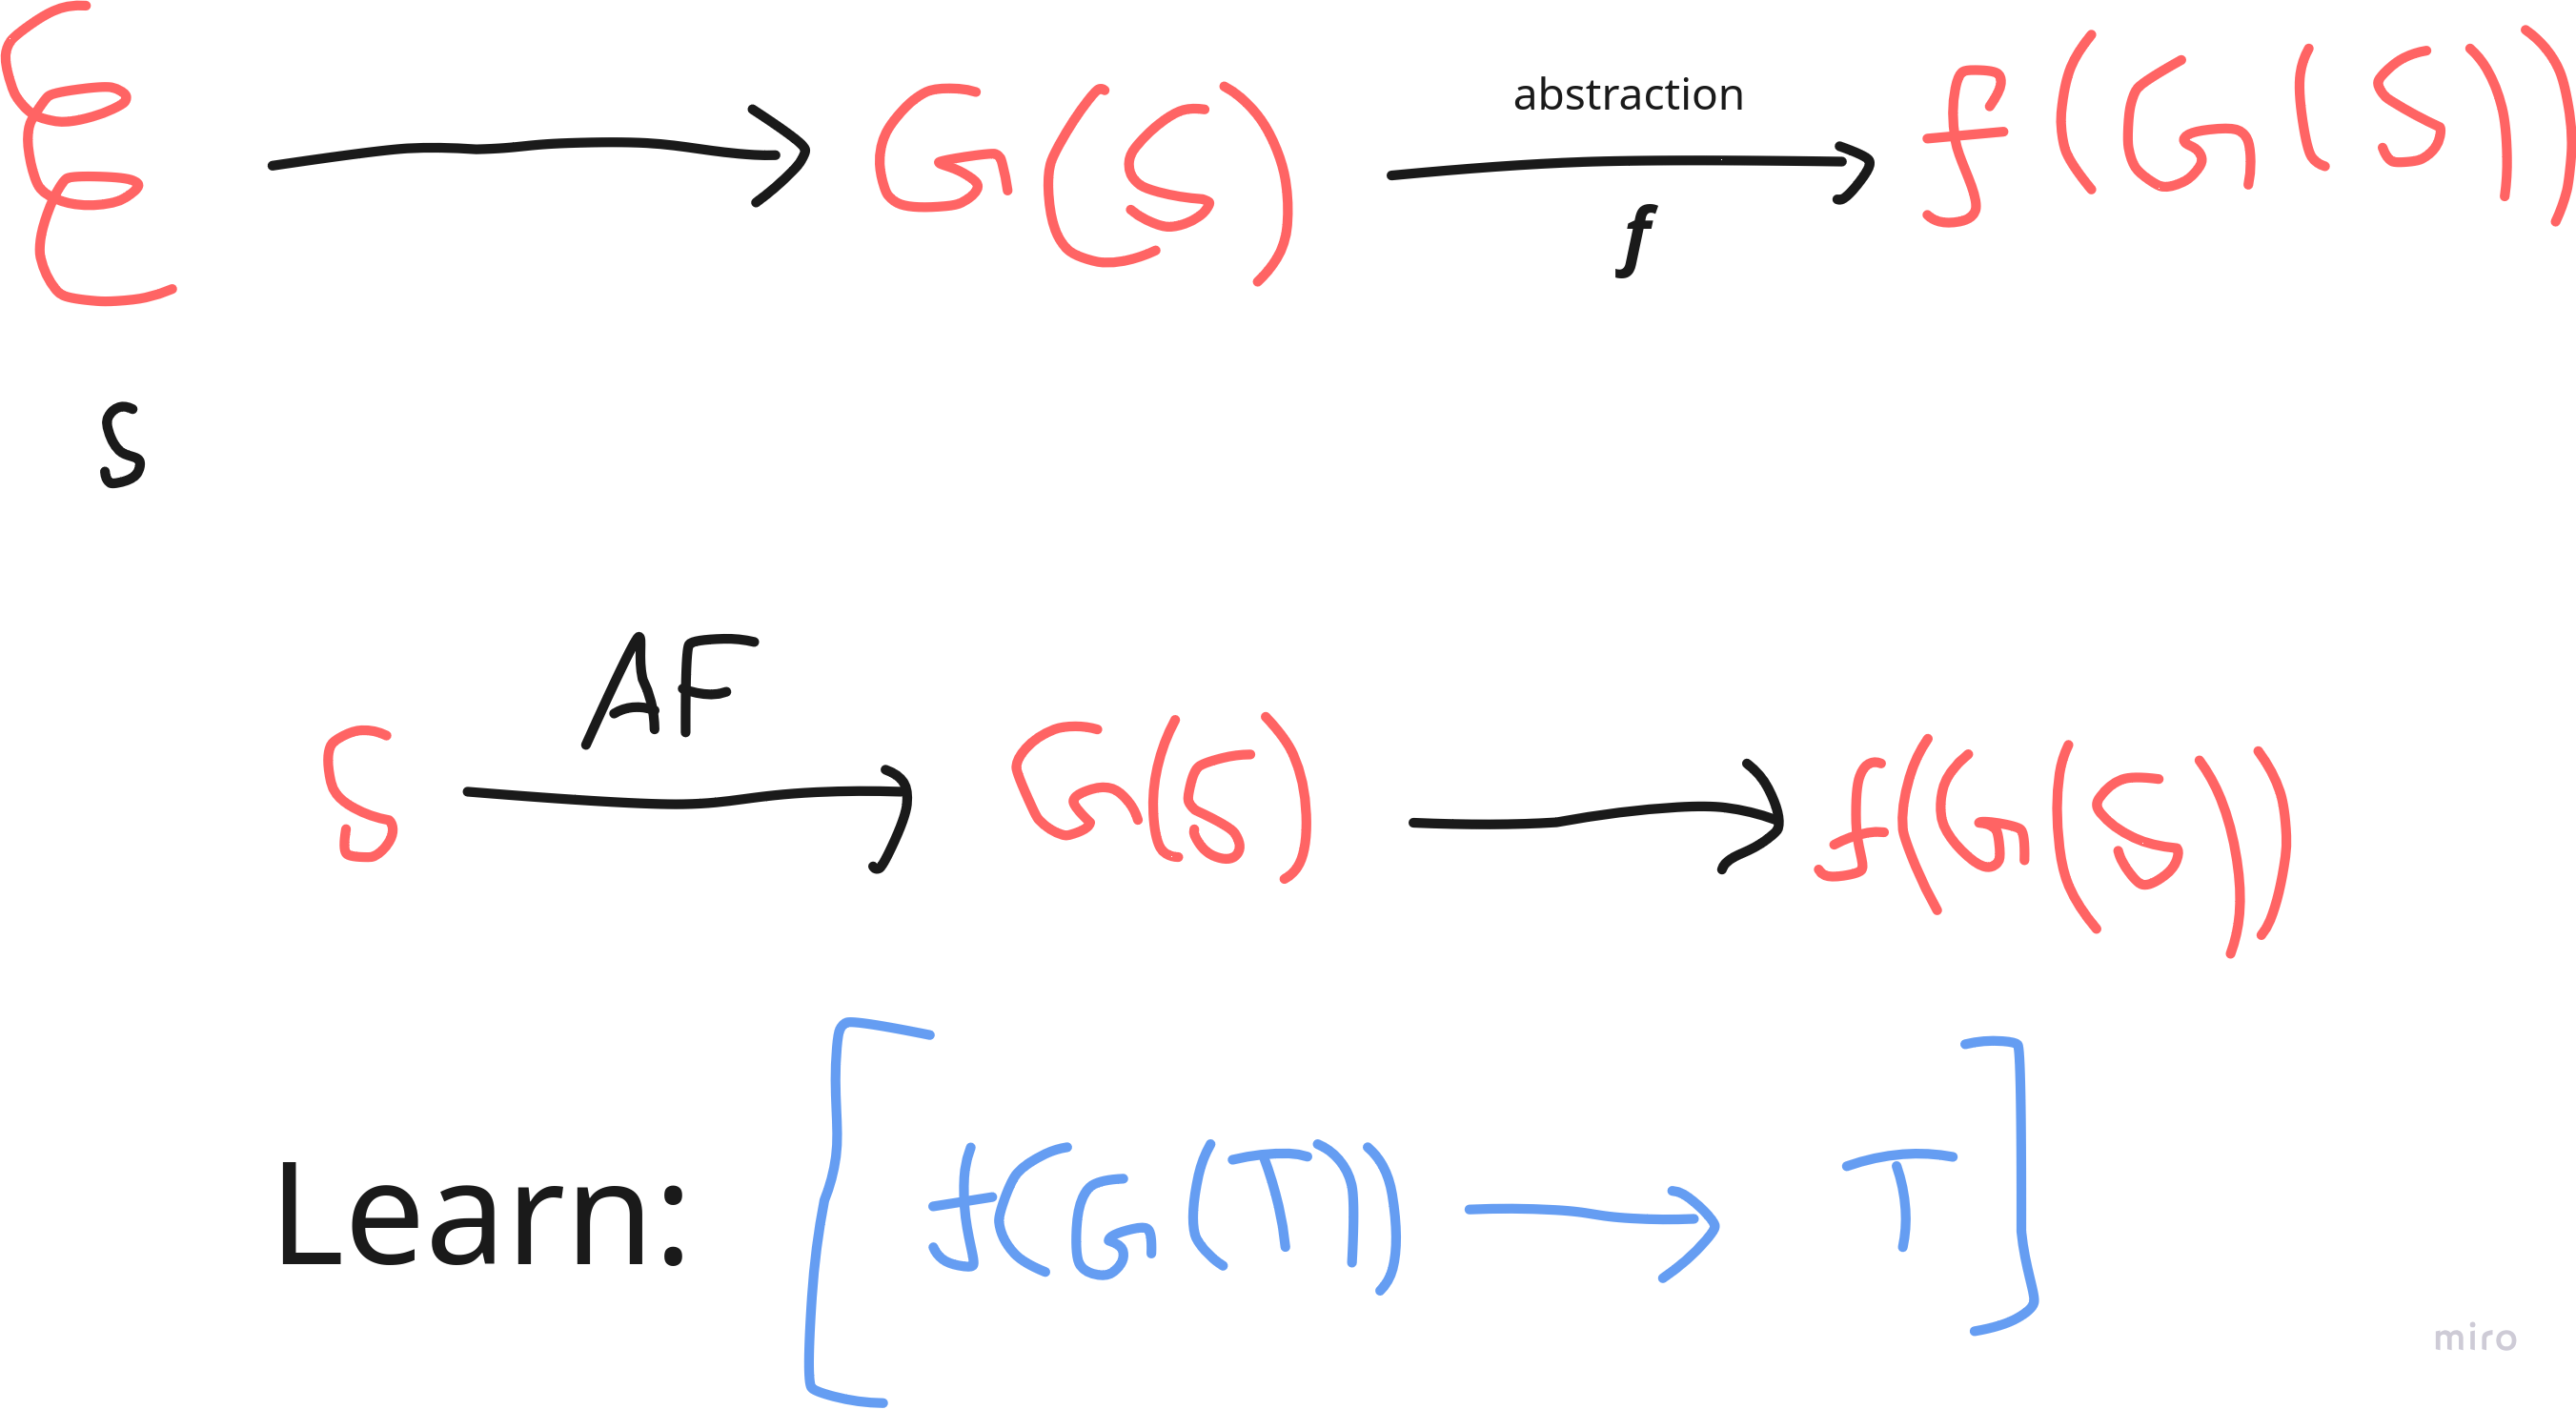 G(S) abstraction f(G(S))
f
S
AF
S G(S) f(G(S))
Learn: [f(G(T)) → T]
miro